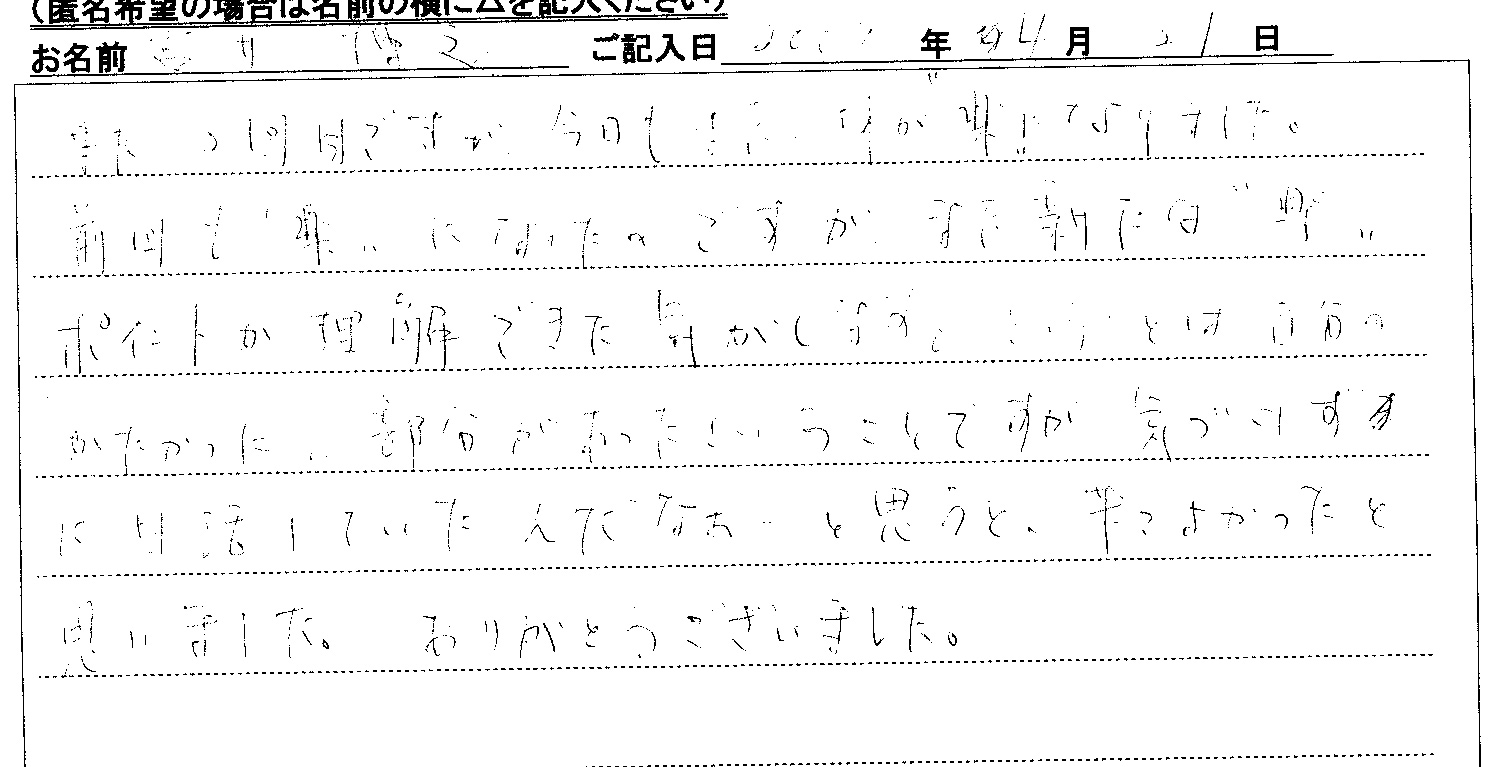 (匿名希望の場合は名前の横に△を記入ください)
お名前 ご記入日 年 4月 21日
まだ2回目ですが、今日もまた、体が"楽"になりました。
前回も"楽"になったのですが、また新たな"楽"
ポイントが理解できた気がします。ということは自分の
"かたかった"部分があったということですが、気づけずす
に生活していたんだなぁ…と思うと、来てよかったと
思いました。ありがとうございました。